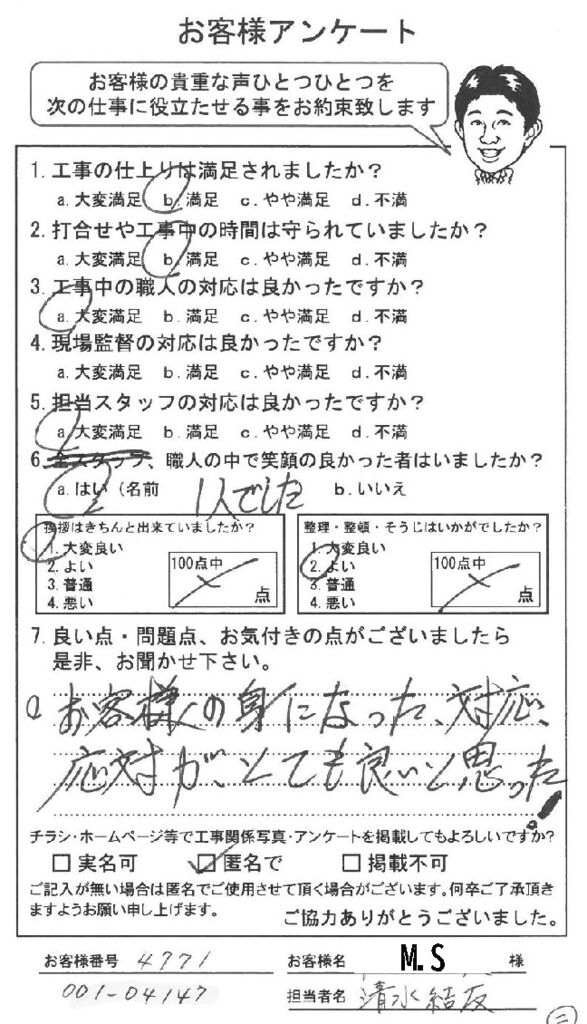 お客様アンケート
お客様の貴重な声ひとつひとつを
次の仕事に役立たせる事をお約束致します
1. 工事の仕上りは満足されましたか？
a. 大変満足 b. 満足 c. やや満足 d. 不満
2. 打合せや工事中の時間は守られていましたか？
a. 大変満足 b. 満足 c. やや満足 d. 不満
3. 工事中の職人の対応は良かったですか？
a. 大変満足 b. 満足 c. やや満足 d. 不満
4. 現場監督の対応は良かったですか？
a. 大変満足 b. 満足 c. やや満足 d. 不満
5. 担当スタッフの対応は良かったですか？
a. 大変満足 b. 満足 c. やや満足 d. 不満
6. 全スタッフ、職人の中で笑顔の良かった者はいましたか？
a. はい（名前 1人でした b. いいえ
挨拶はきちんと出来ていましたか？
1. 大変良い
2. よい
3. 普通
4. 悪い
100点中
点
整理・整頓・そうじはいかがでしたか？
1. 大変良い
2. よい
3. 普通
4. 悪い
100点中
点
7. 良い点・問題点、お気付きの点がございましたら
是非、お聞かせ下さい。
お客様の身になった、対応、
応対が、とても良いと思った!
チラシ・ホームページ等で工事関係写真・アンケートを掲載してもよろしいですか？
□ 実名可 □ 匿名で □ 掲載不可
ご記入が無い場合は匿名でご使用させて頂く場合がございます。何卒ご了承頂き
ますようお願い申し上げます。
ご協力ありがとうございました。
お客様番号 4771 お客様名 M.S 様
001-04147 担当者名 清水結友
三